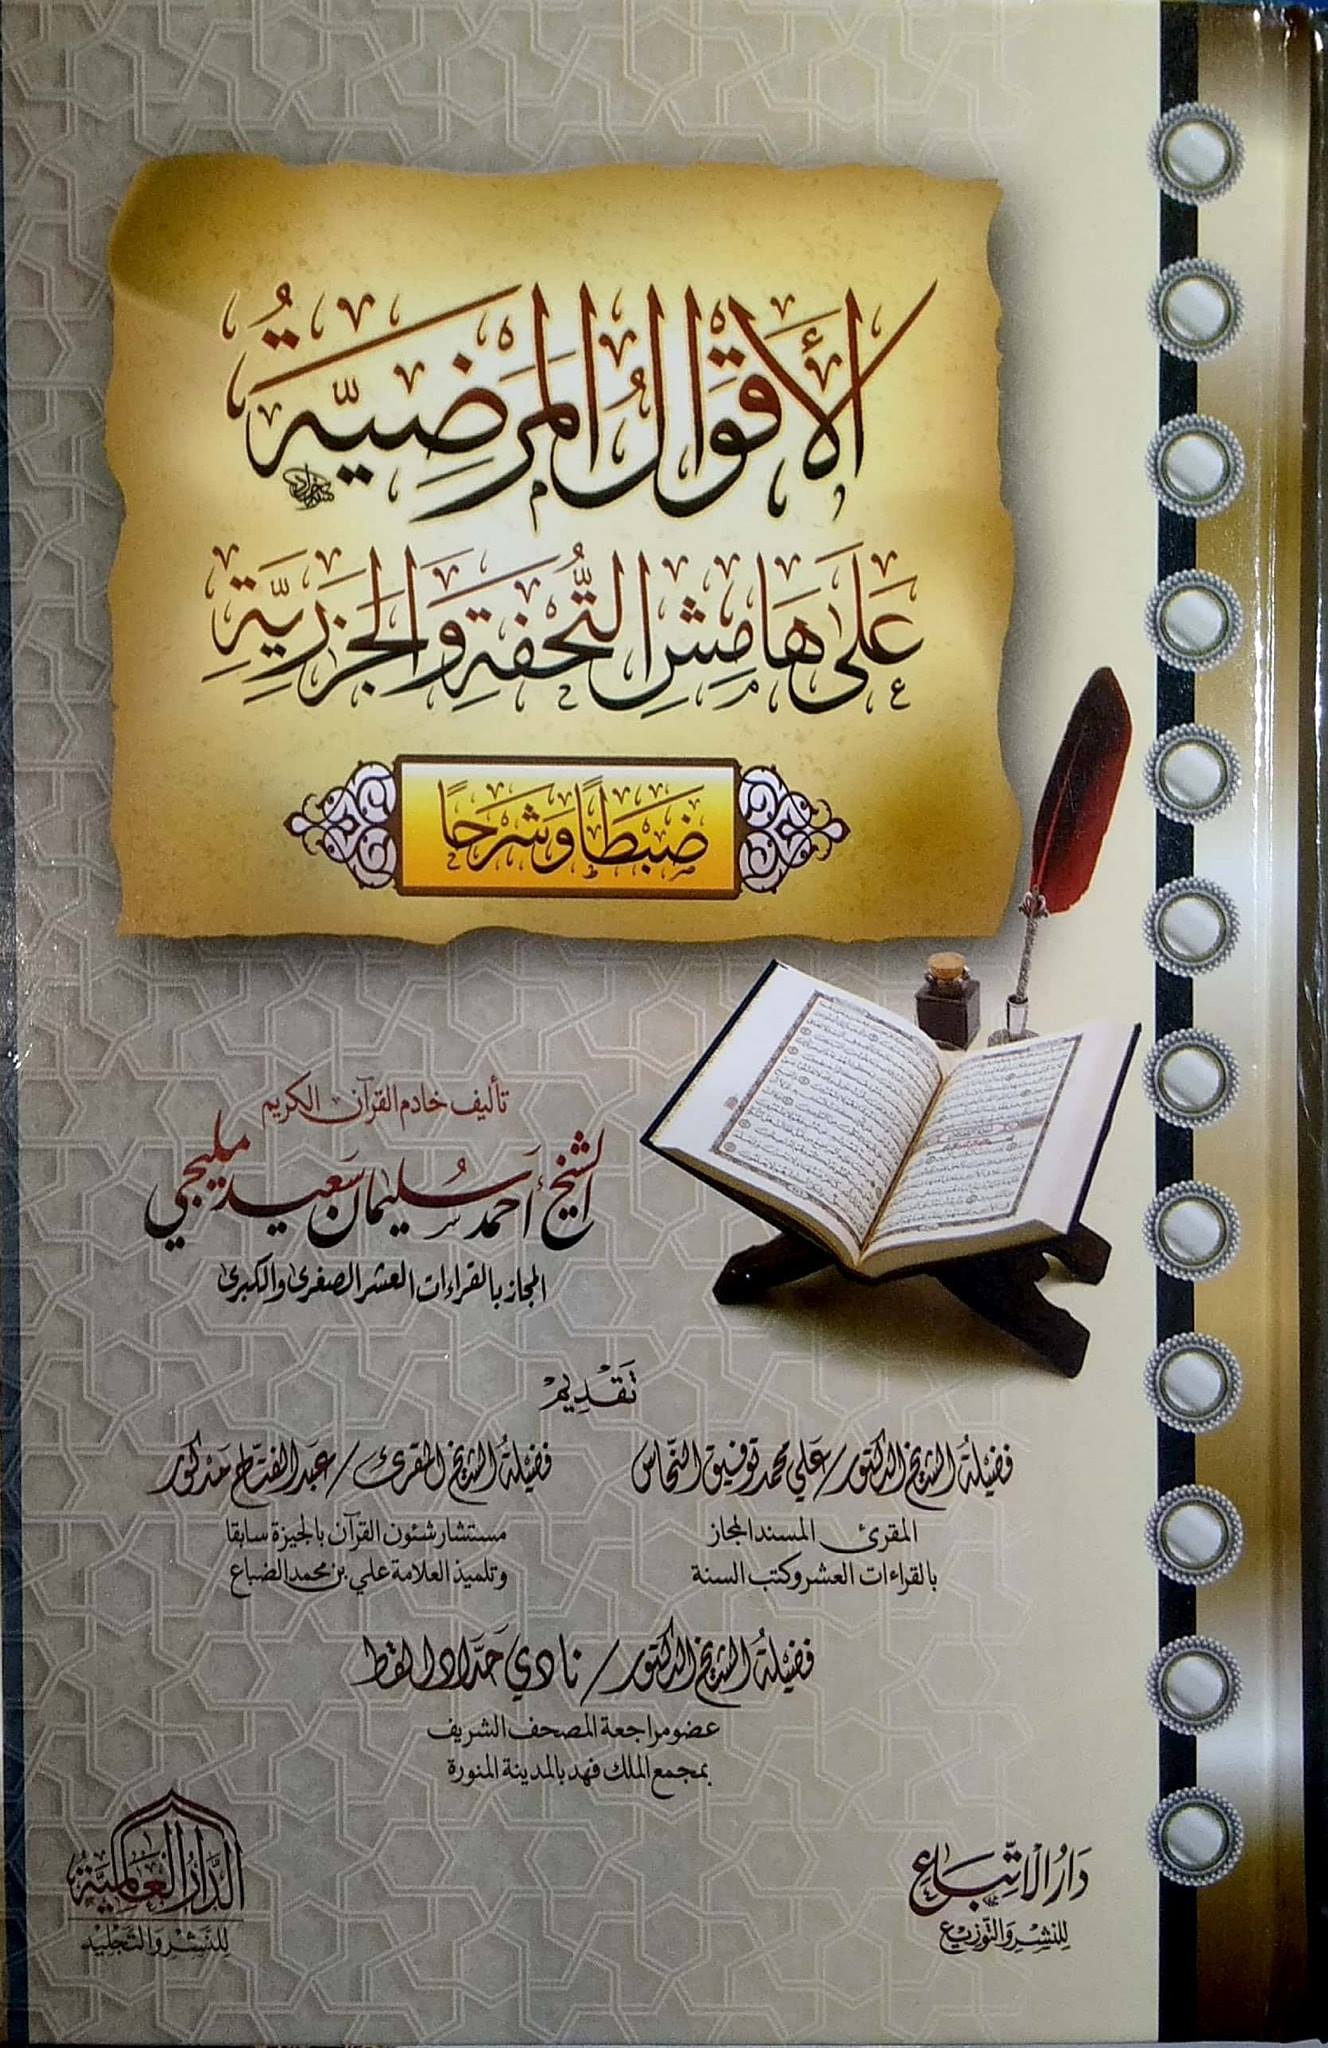 الأَقْوَالُ المَرْضِيَّةُ
عَلَى هَامِشِ التُّحْفَةِ وَالجَزَرِيَّةِ
ضَبْطًا وَشَرْحًا
تأليف خادم القرآن الكريم
الشيخ أحمد سليمان سعيد مليجي
المجاز بالقراءات العشر الصغرى والكبرى
تقديم
فضيلة الشيخ الدكتور / علي محمد توفيق النحاس
المقرئ المسند المجاز
بالقراءات العشر وكتب السنة
فضيلة الشيخ المقرئ / عبد الفتاح مدكور
مستشار شئون القرآن بالجيزة سابقا
وتلميذ العلامة علي بن محمد الضباع
فضيلة الشيخ الدكتور / نادي حداد القط
عضو مراجعة المصحف الشريف
بمجمع الملك فهد بالمدينة المنورة
دَارُ الاتِّبَاع
للنشر والتوزيع
الدَّارُ العَالَمِيَّةُ
للنشر والتجليد